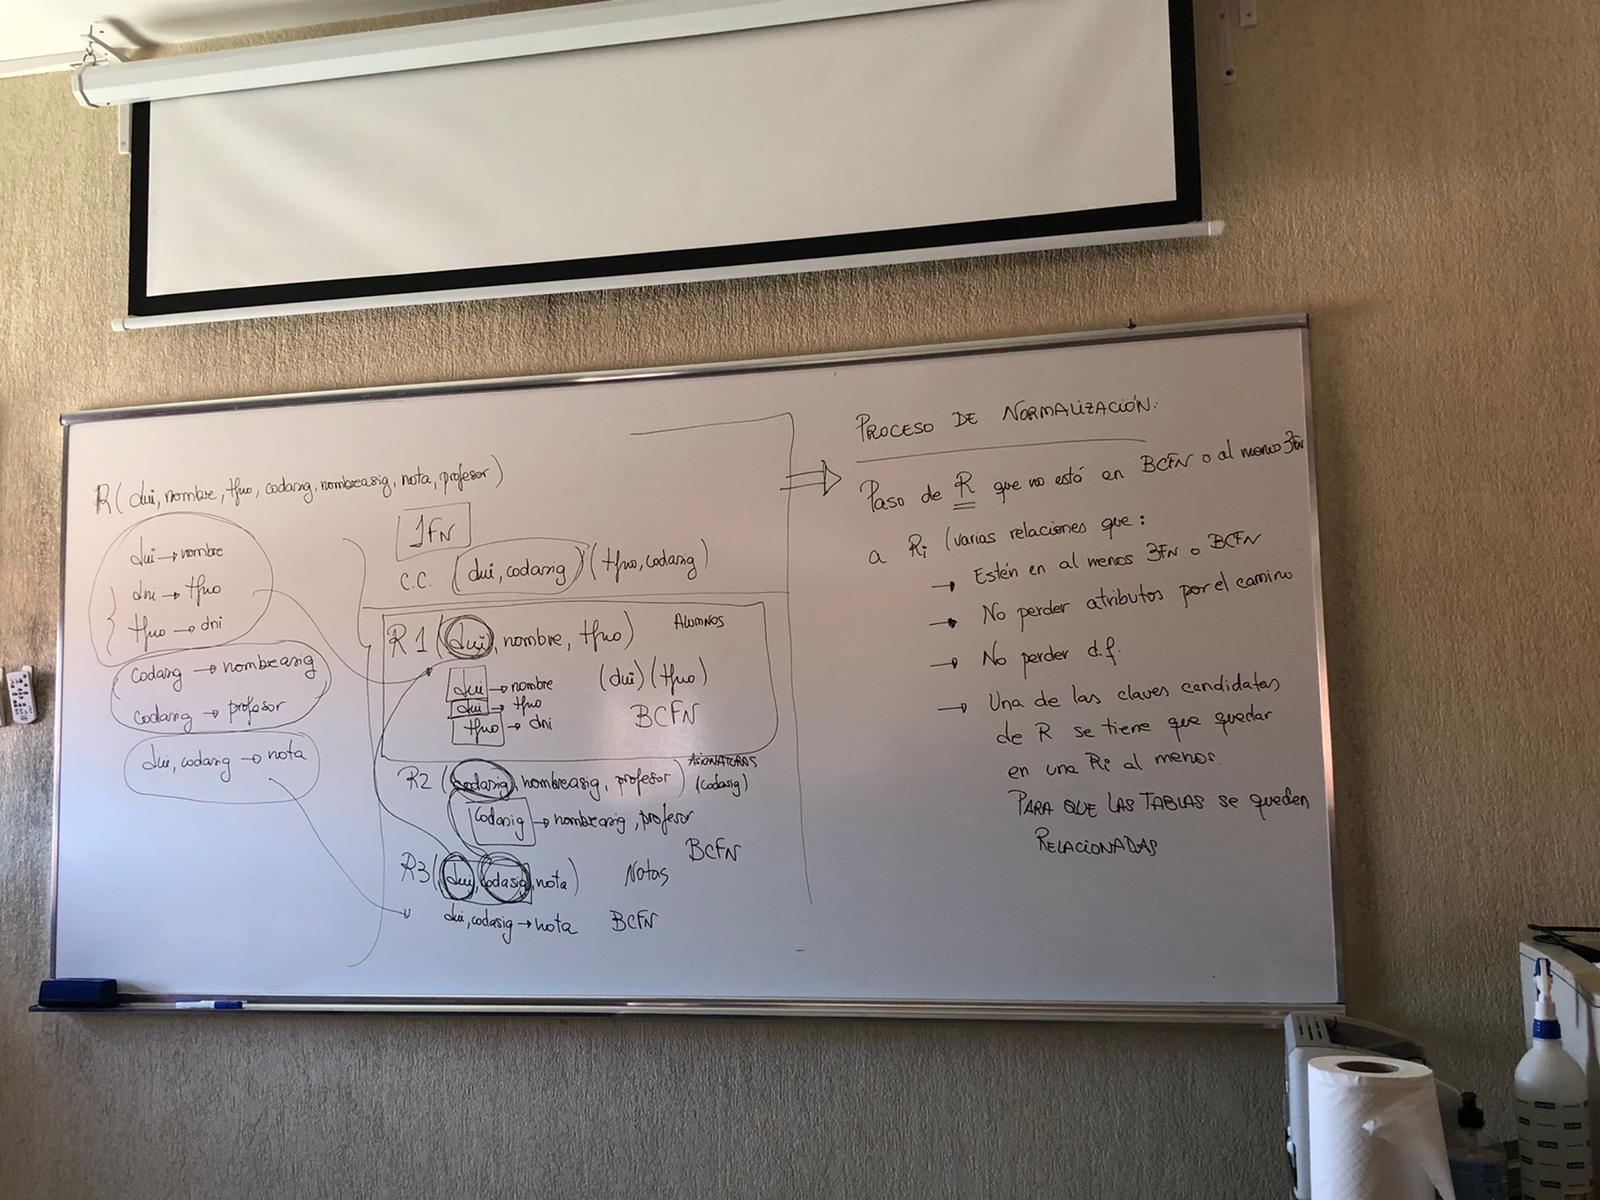 R(dni, nombre, tfno, codasig, nombreasig, nota, profesor)
dni → nombre
dni → tfno
tfno → dni
codasig → nombreasig
codasig → profesor
dni, codasig → nota
1FN
C.C. (dni, codasig) (tfno, codasig)
R1 (dni, nombre, tfno) ALUMNOS
dni → nombre (dni) (tfno)
dni → tfno
tfno → dni BCFN
R2 (codasig, nombreasig, profesor) ASIGNATURAS
(codasig)
codasig → nombreasig, profesor
BCFN
R3 (dni, codasig, nota) Notas
dni, codasig → nota BCFN
PROCESO DE NORMALIZACIÓN.
Paso de R que no está en BCFN o al menos 3FN
a Ri (varias relaciones que:
→ Estén en al menos 3FN o BCFN
→ No perder atributos por el camino
→ No perder d.f.
→ Una de las claves candidatas
de R se tiene que quedar
en una Ri al menos.
PARA QUE LAS TABLAS se queden
RELACIONADAS